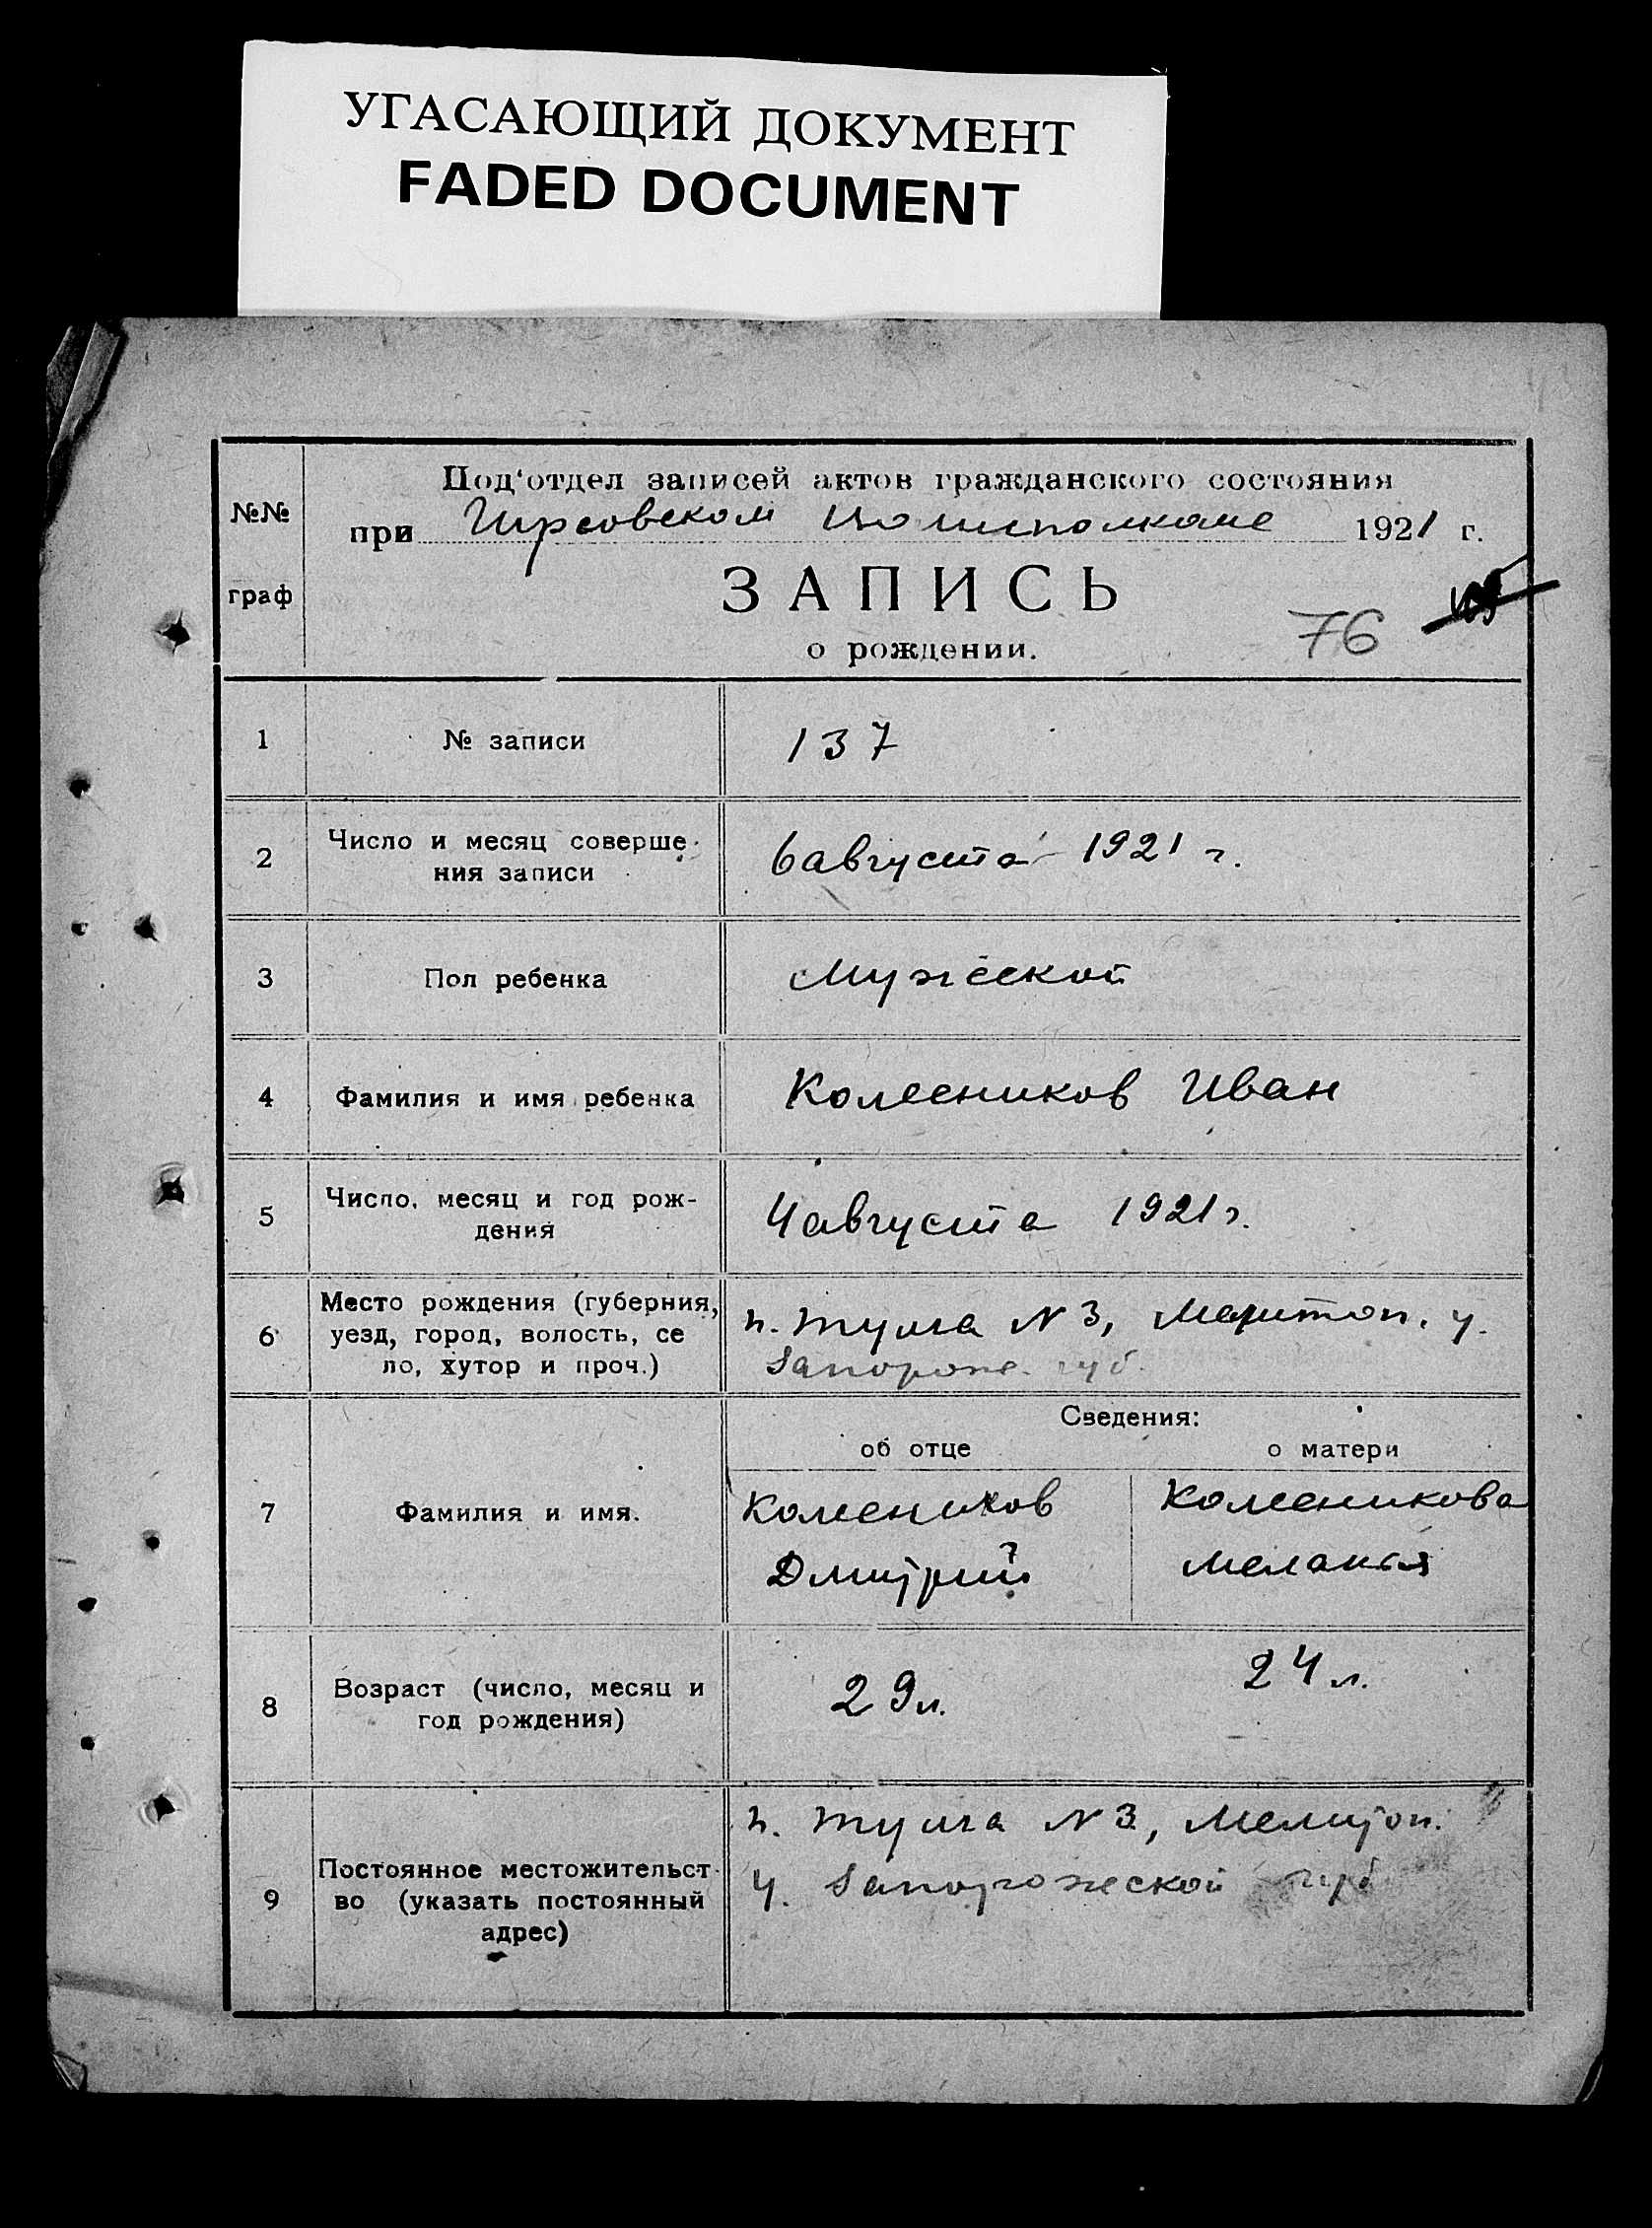 УГАСАЮЩИЙ ДОКУМЕНТ
FADED DOCUMENT
№№
граф
Под'отдел записей актов гражданского состояния
при 1921 г.
ЗАПИСЬ
о рождении.
76
1 № записи 137
2 Число и месяц соверше-
ния записи
6 августа 1921 г.
3 Пол ребенка Мужеской
4 Фамилия и имя ребенка Колесников Иван
5 Число, месяц и год рож-
дения
4 августа 1921 г.
6 Место рождения (губерния,
уезд, город, волость, се
ло, хутор и проч.)
N 3, у.
Запорож. губ.
Сведения:
об отце о матери
7 Фамилия и имя.
Колесников
Дмитрий
Колесникова
Меланья
8 Возраст (число, месяц и
год рождения)
29 л. 24 л.
9 Постоянное местожительст-
во (указать постоянный
адрес)
N 3, Мелитоп.
у. Запорожеской губ